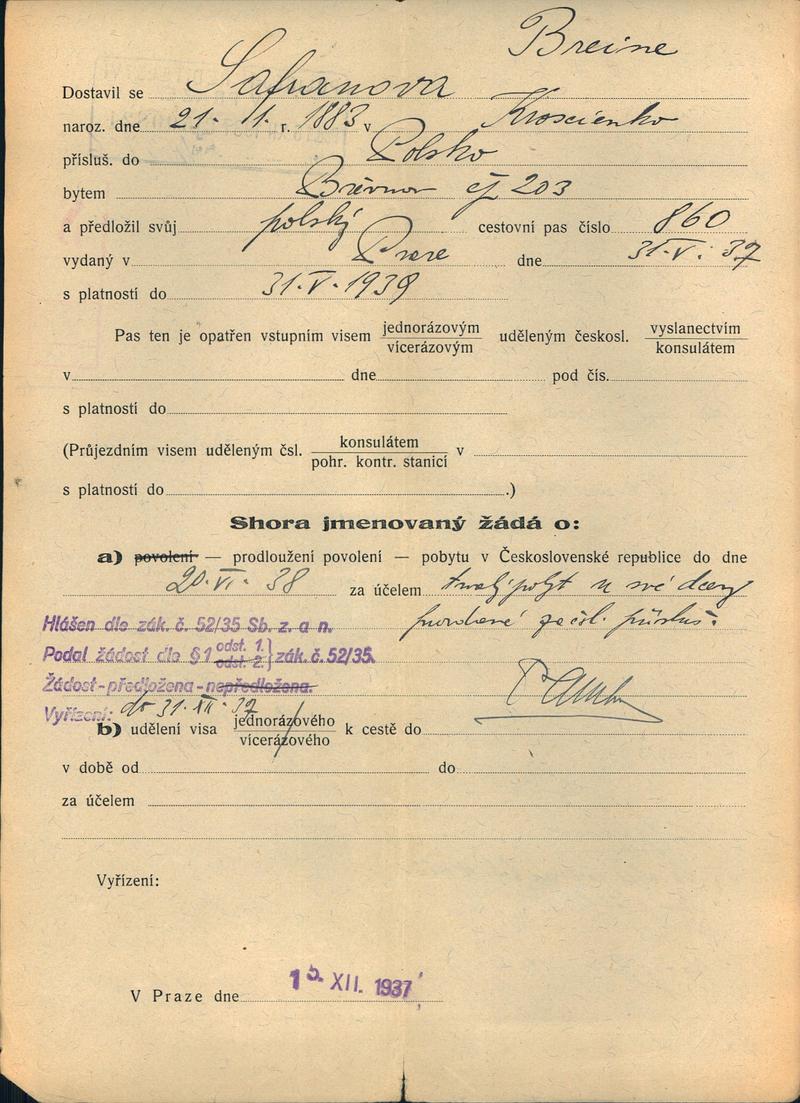 Breine
Dostavil se Safranova
naroz. dne 21. 11. r. 1883 v Kroscienko
přísluš. do Polsko
bytem Břevnov čj 203
a předložil svůj polský cestovní pas číslo 860
vydaný v Praze dne 31.V. 37
s platností do 31.V.1939
Pas ten je opatřen vstupním visem jednorázovým uděleným českosl. vyslanectvím
vícerázovým konsulátem
v dne pod čís.
s platností do
(Průjezdním visem uděleným čsl. konsulátem v
pohr. kontr. stanicí
s platností do .)
Shora jmenovaný žádá o:
a) povolení — prodloužení povolení — pobytu v Československé republice do dne
20.VI. 38 za účelem trvalý pobyt u své dcery
Hlášen dle zák. č. 52/35 Sb. z. a n. provdané za čsl. přísluš.
Podal žádost dle § 1 odst. 1. odst. 2. } zák. č. 52/35.
Žádost - předložena - nepředložena.
Vyřízení: do 31. XII. 37
b) udělení visa jednorázového k cestě do
vícerázového
v době od do
za účelem
Vyřízení:
V Praze dne 15. XII. 1937